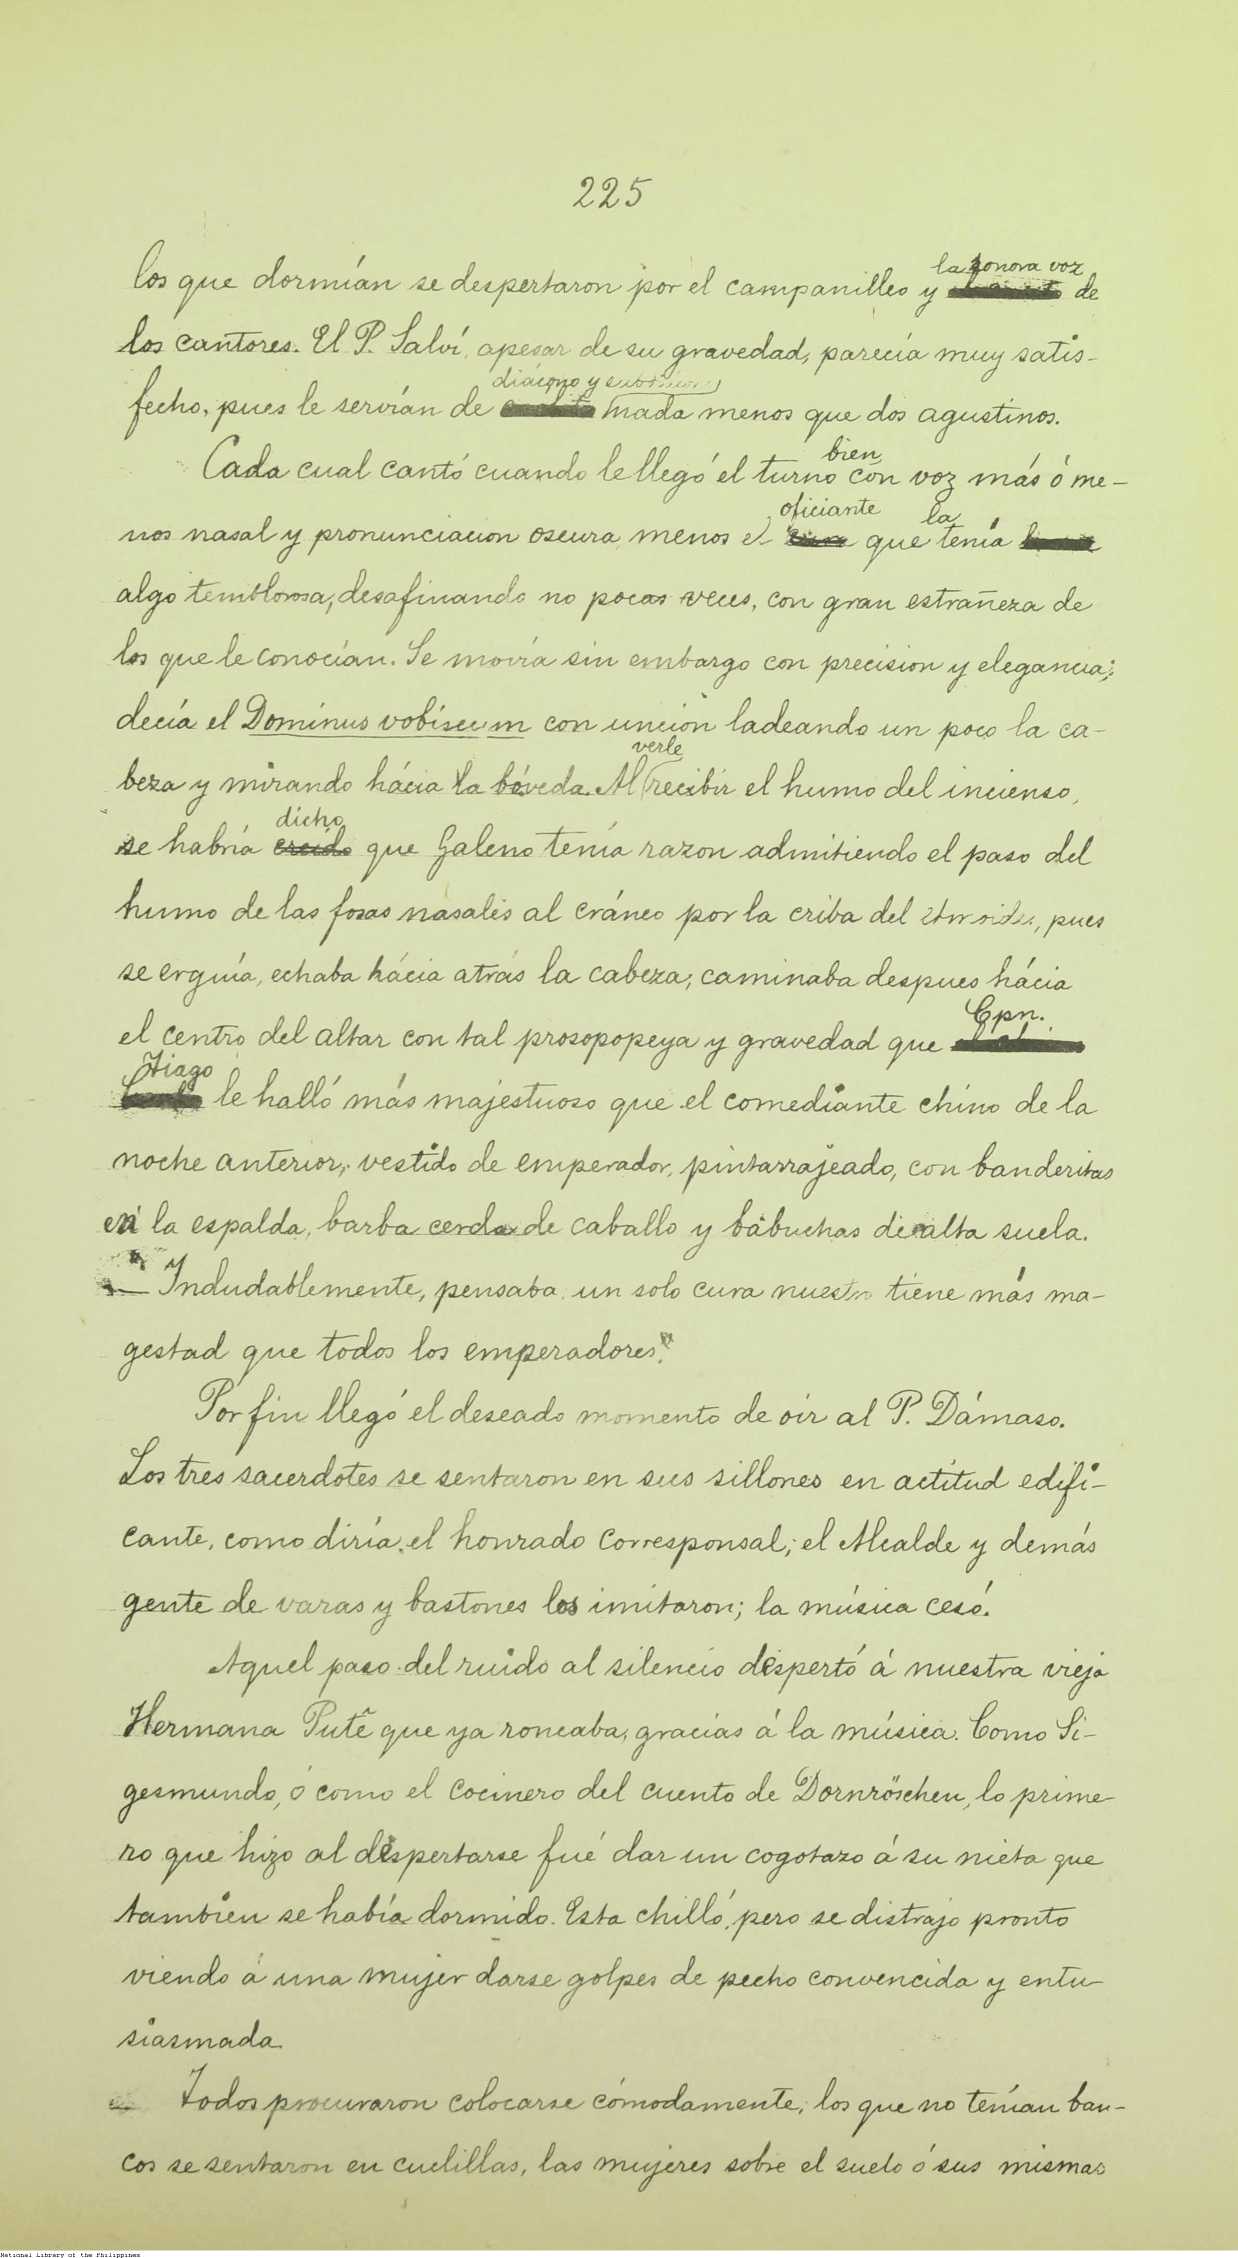 225
la sonora voz
los que dormían se despertaron por el campanilleo y de
los cantores. El P. Salví, apesar de su gravedad, parecía muy satis-
diácono y subdiácono
fecho, pues le servían de nada menos que dos agustinos.
bien
Cada cual cantó cuando le llegó el turno con voz más ó me-
oficiante la
nos nasal y pronunciacion oscura, menos el que tenía
algo temblorosa, desafinando no pocas veces, con gran estrañeza de
los que le conocían. Se movía sin embargo con precision y elegancia;
decía el Dominus vobiscum con uncion ladeando un poco la ca-
verle
beza y mirando hácia la bóveda. Al recibir el humo del incienso,
dicho
se habría creido que Galeno tenía razon admitiendo el paso del
humo de las fosas nasales al cráneo por la criba del etmoides, pues
se erguía, echaba hácia atrás la cabeza, caminaba despues hácia
Cpn.
el centro del altar con tal prosopopeya y gravedad que
Tiago
le halló más majestuoso que el comediante chino de la
noche anterior, vestido de emperador, pintarrajeado, con banderitas
en la espalda, barba cerda de caballo y babuchas de alta suela.
— Indudablemente, pensaba, un solo cura nuestro tiene más ma-
gestad que todos los emperadores.
Por fin llegó el deseado momento de oir al P. Dámaso.
Los tres sacerdotes se sentaron en sus sillones en actitud edifi-
cante, como diría el honrado corresponsal; el Alcalde y demás
gente de varas y bastones los imitaron; la música cesó.
Aquel paso del ruido al silencio despertó á nuestra vieja
Hermana Putê que ya roncaba, gracias á la música. Como Si-
gesmundo, ó como el cocinero del cuento de Dornröschen, lo prime-
ro que hizo al despertarse fué dar un cogotazo á su nieta que
tambien se había dormido. Esta chilló, pero se distrajo pronto
viendo á una mujer darse golpes de pecho convencida y entu-
siasmada.
Todos procuraron colocarse cómodamente, los que no tenían ban-
cos se sentaron en cuclillas, las mujeres sobre el suelo ó sus mismas
National Library of the Philippines